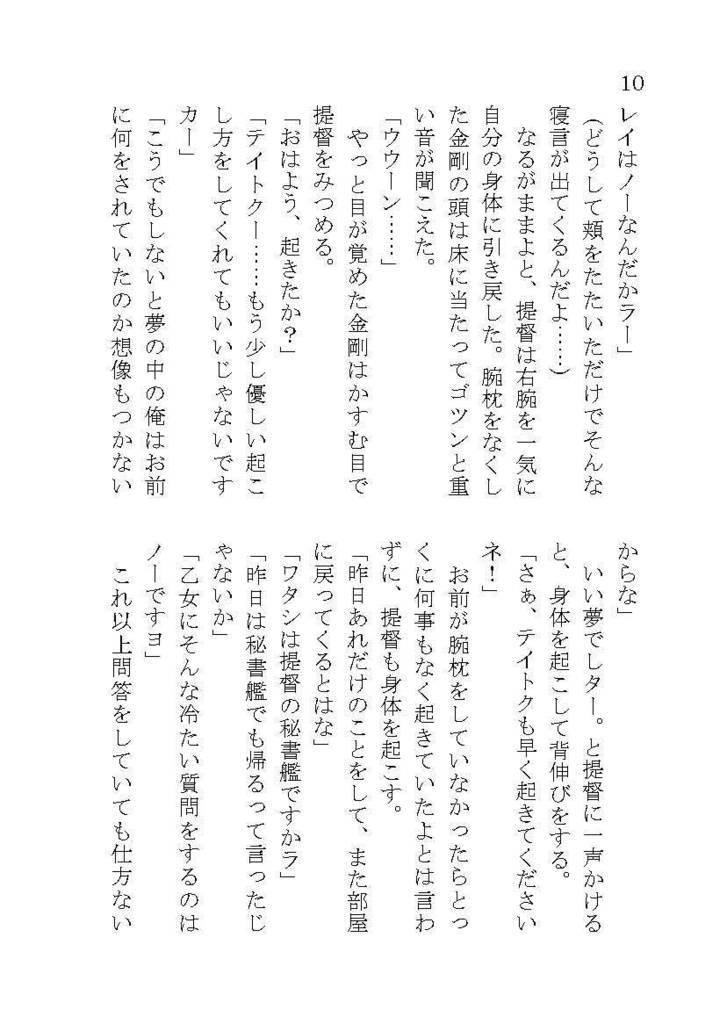 10
レイはノーなんだかラー」
(どうして頬をたたいただけでそんな
寝言が出てくるんだよ……)
なるがままよと、提督は右腕を一気に
自分の身体に引き戻した。腕枕をなくし
た金剛の頭は床に当たってゴツンと重
い音が聞こえた。
「ウウーン……」
やっと目が覚めた金剛はかすむ目で
提督をみつめる。
「おはよう、起きたか？」
「テイトクー……もう少し優しい起こ
し方をしてくれてもいいじゃないです
カー」
「こうでもしないと夢の中の俺はお前
に何をされていたのか想像もつかない
からな」
いい夢でしター。と提督に一声かける
と、身体を起こして背伸びをする。
「さぁ、テイトクも早く起きてください
ネ！」
お前が腕枕をしていなかったらとっ
くに何事もなく起きていたよとは言わ
ずに、提督も身体を起こす。
「昨日あれだけのことをして、また部屋
に戻ってくるとはな」
「ワタシは提督の秘書艦ですかラ」
「昨日は秘書艦でも帰るって言ったじ
ゃないか」
「乙女にそんな冷たい質問をするのは
ノーですヨ」
これ以上問答をしていても仕方ない